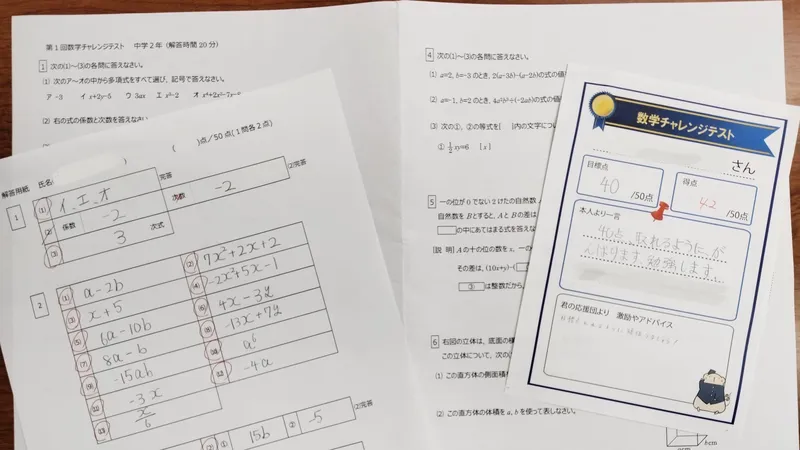 第１回数学チャレンジテスト　中学２年（解答時間20分）
1 次の(1)～(3)の各問に答えなさい。
(1) 次のア～オの中から多項式をすべて選び、記号で答えなさい。
ア -3　イ x+2y-5　ウ 3ax　エ x²-2　オ
(2) 右の式の係数と次数を答えなさい
)点／50点(１問各２点)
解答用紙　氏名(
1
(1) イ、エ、オ 完答
(2) 係数 -2 次数 -2 (2)完答
(3) 3 次式
2
(1) a-2b (2) 7x²+2x+2
(3) x+5 (4) -2x²+5x-1
(5) 6a-10b (6) 4x-3y
(7) 8a-b (8) -13x+7y
(9) -15ab (10) a⁶
(11) -3x (12) -4a
(13) x/6
(2)完答
(2) ① 15b ② -5
4 次の(1)～(3)の各問に答えなさい。
(1) a=2, b=-3 のとき、2(a-3b)-(a-2b)の式の値
(2) a=-1, b=2 のとき、4a²b³÷(-2ab)の式の値
(3) 次の①、②の等式を[　]内の文字につい
① 1/2 xy=6 [x]
5 一の位が０でない２けたの自然数
自然数をBとすると、AとBの差は
の中にあてはまる式を答えな
[説明] Aの十の位の数をx、一の
その差は、(10x+y)-(
③ は整数だから、
6 右図の立体は、底面の横
この立体について、次の
(1) この直方体の側面積
(2) この直方体の体積をa, bを使って表しなさい。
bcm
数学チャレンジテスト
さん
目標点
40 /50点
得点
42 /50点
本人より一言
40点、取れるように、が
んばります。勉強します。
君の応援団より　激励やアドバイス